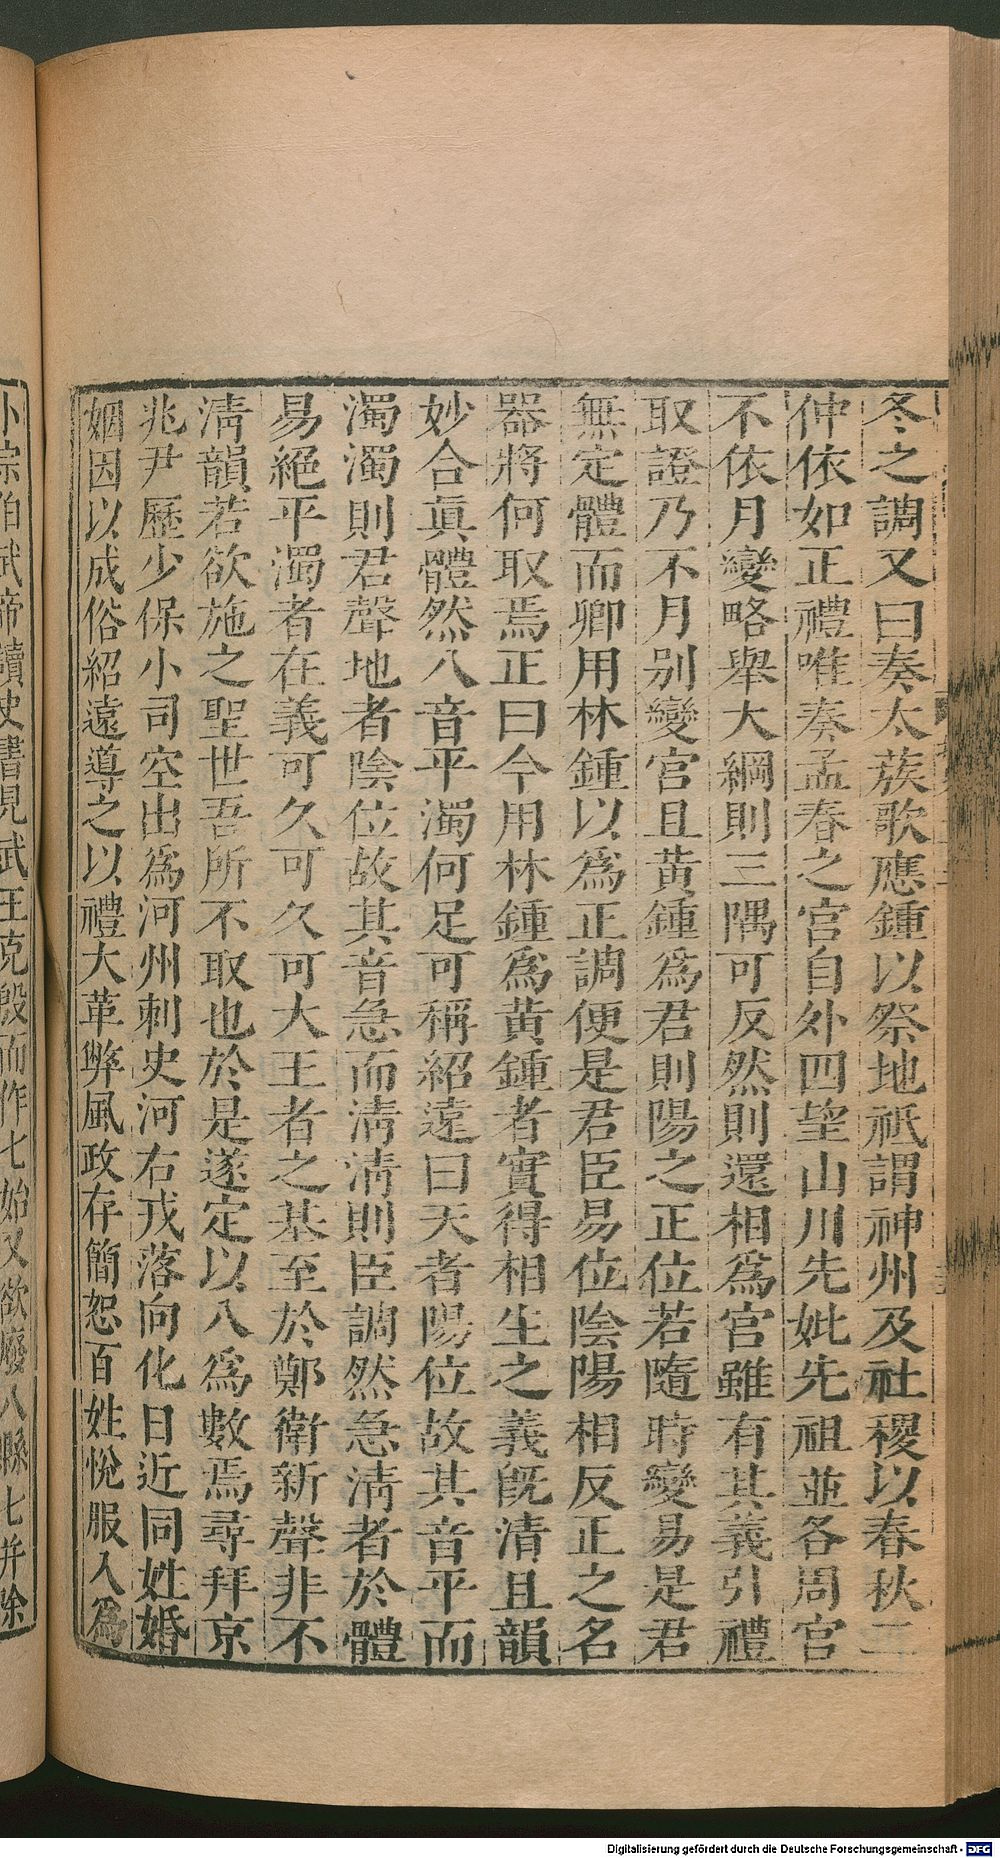 冬之調又曰奏太蔟歌應鍾以祭地祇謂神州及社稷以春秋二
仲依如正禮唯奏孟春之宮自外四望山川先妣先祖並各周官
不依月變略舉大綱則三隅可反然則還相爲宮雖有其義引禮
取證乃不月別變宮且黃鍾爲君則陽之正位若隨時變易是君
無定體而卿用林鍾以爲正調便是君臣易位陰陽相反正之名
器將何取焉正曰今用林鍾爲黃鍾者實得相生之義旣清且韻
妙合眞體然八音平濁何足可稱紹遠曰天者陽位故其音平而
濁濁則君聲地者陰位故其音急而淸淸則臣調然急淸者於體
易絕平濁者在義可久可久可大王者之基至於鄭衞新聲非不
淸韻若欲施之聖世吾所不取也於是遂定以八爲數焉尋拜京
兆尹歷少保小司空出爲河州刺史河右戎落向化日近同姓婚
姻因以成俗紹遠導之以禮大革弊風政存簡恕百姓悅服入爲
小宗伯武帝讀史書見武王克殷而作七始又欲廢八縣七并除
Digitalisierung gefördert durch die Deutsche Forschungsgemeinschaft - DFG